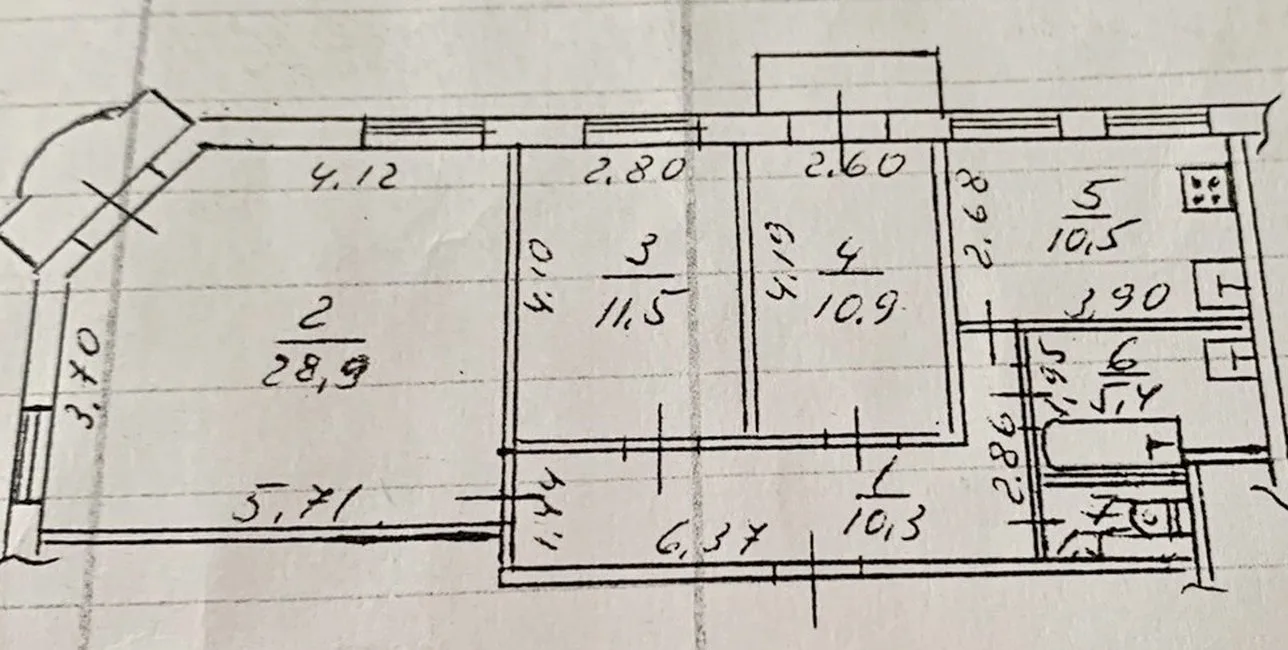 4.12
2.80
2.60
2
28,9
3.70
5,71
4.10
3
11.5
4.19
4
10.9
2.68
5
10,5
3,90
1,95
6
5,4
2.86
1.44
6,37
1
10,3
7